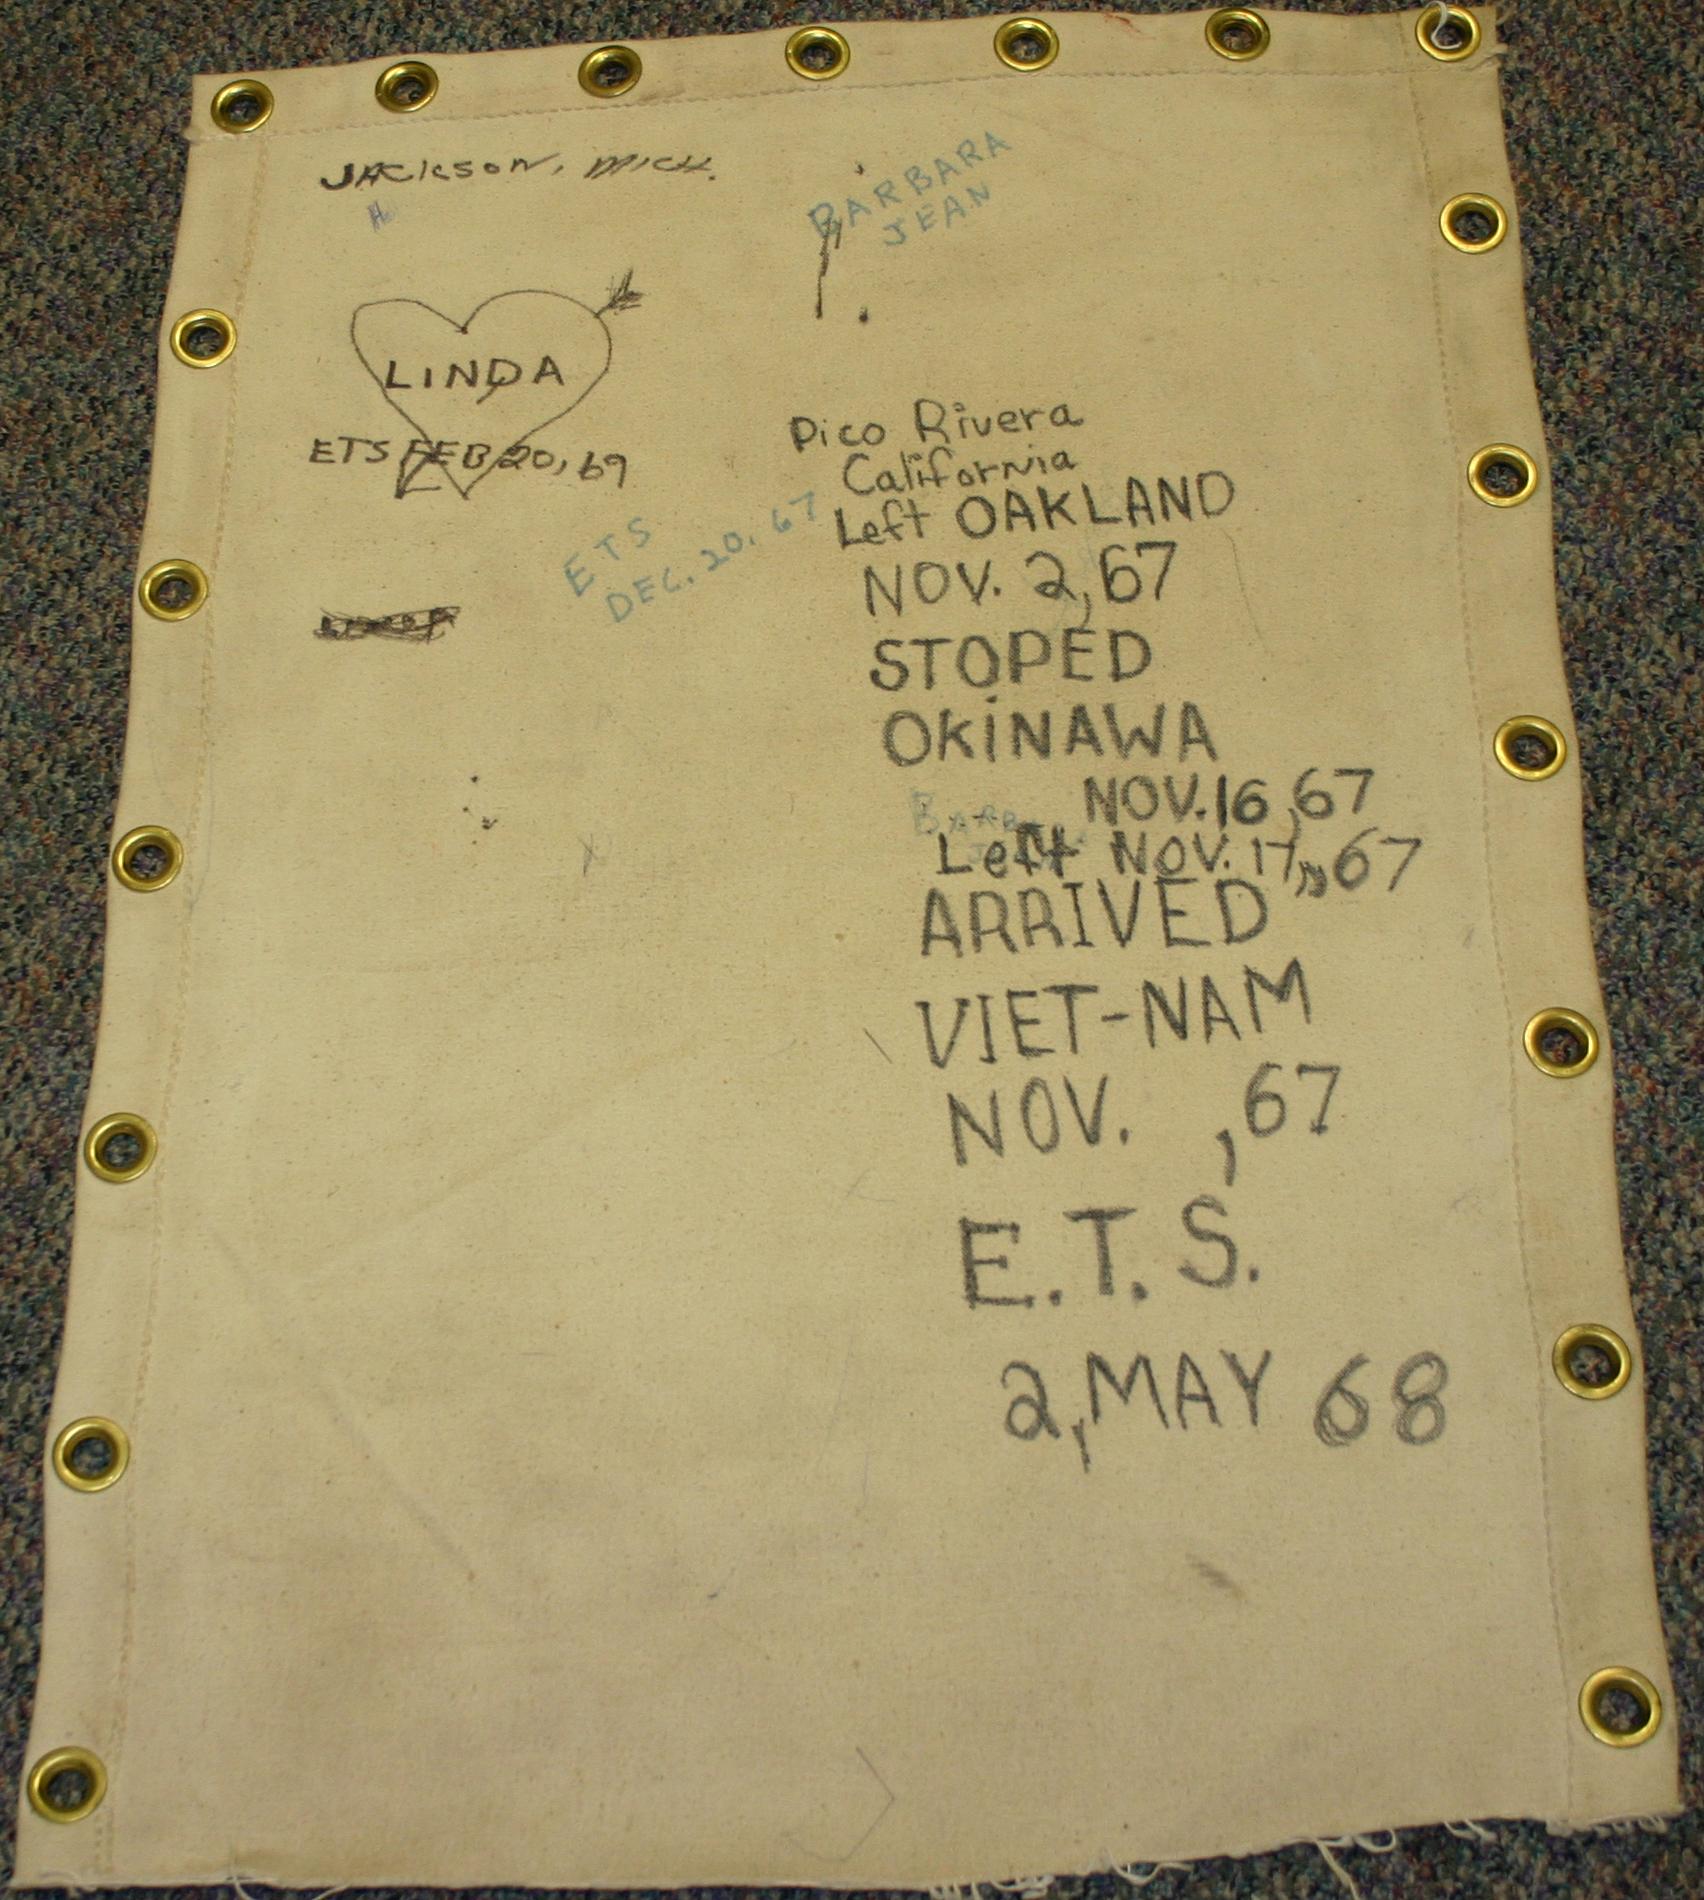 JACKSON, MICH.
BARBARA
JEAN
LINDA
ETS FEB 20, 69
ETS
DEC. 20, 67
Pico Rivera
California
Left OAKLAND
NOV. 2, 67
STOPED
OKiNAWA
NOV. 16, 67
Left NOV. 17, 67
ARRIVED
VIET-NAM
NOV. , 67
E.T.S.
2, MAY 68